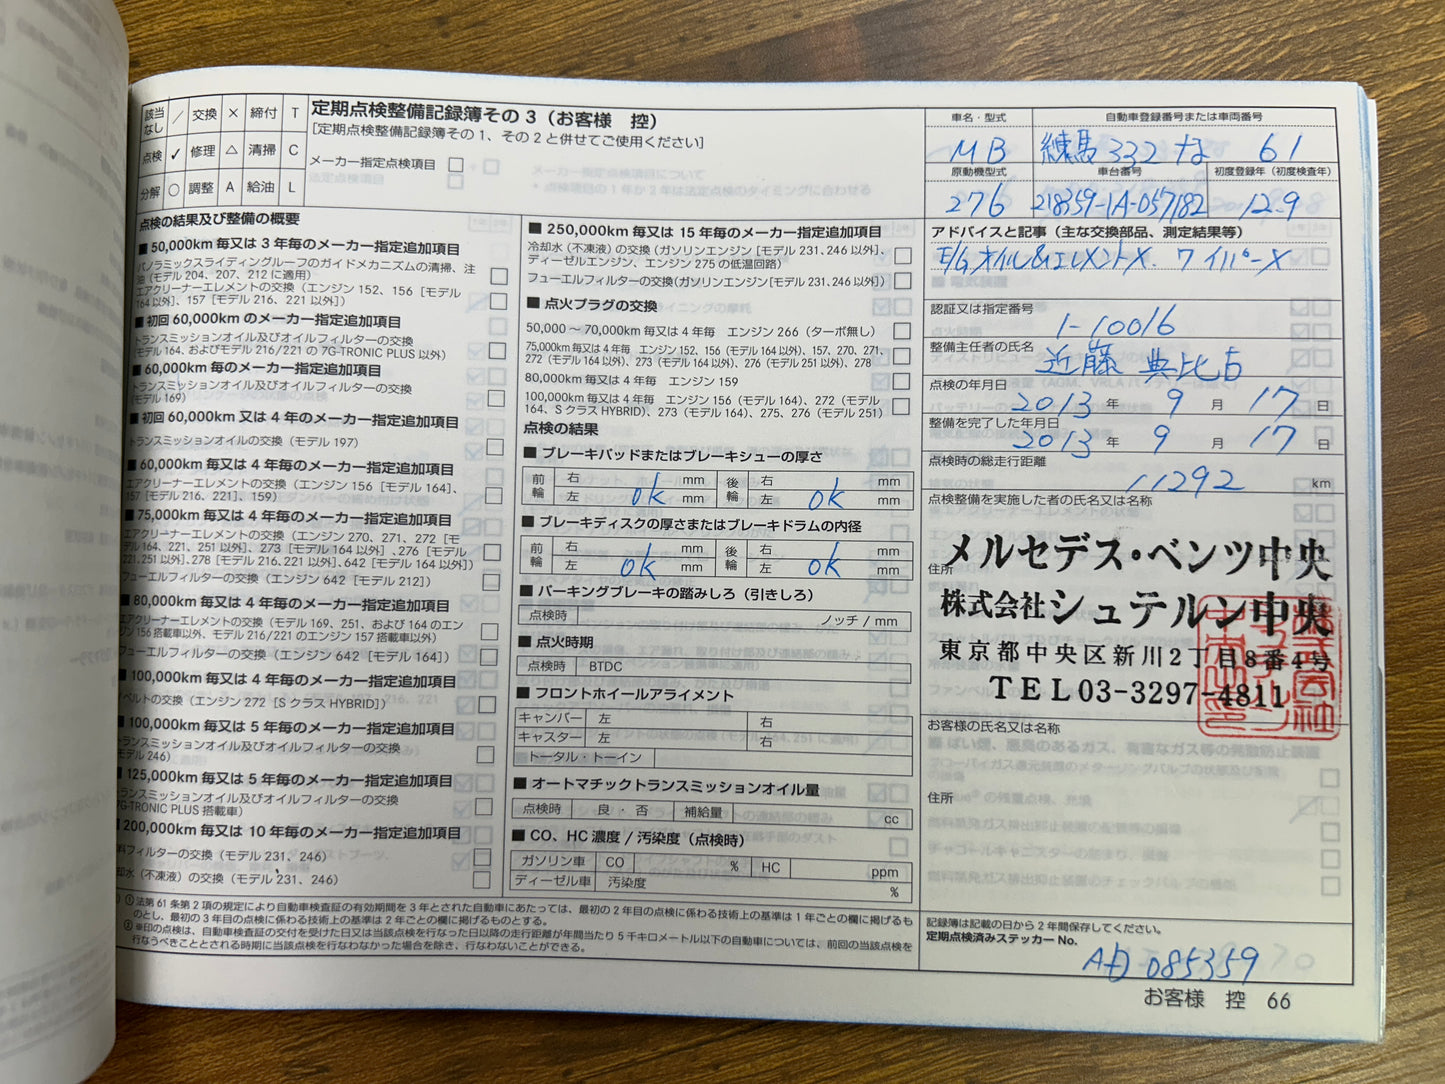 該当なし ／ 交換 × 締付 T
点検 ✓ 修理 △ 清掃 C
分解 ○ 調整 A 給油 L
定期点検整備記録簿その 3（お客様 控）
[定期点検整備記録簿その 1、その 2 と併せてご使用ください]
メーカー指定点検項目 □
点検の結果及び整備の概要
■ 50,000km 毎又は 3 年毎のメーカー指定追加項目
パノラミックスライディングルーフのガイドメカニズムの清掃、注
油（モデル 204、207、212 に適用）
エアクリーナーエレメントの交換（エンジン 152、156［モデル
164 以外］、157［モデル 216、221 以外］）
■ 初回 60,000km のメーカー指定追加項目
トランスミッションオイル及びオイルフィルターの交換
（モデル 164、およびモデル 216/221 の 7G-TRONIC PLUS 以外）
■ 60,000km 毎のメーカー指定追加項目
トランスミッションオイル及びオイルフィルターの交換
（モデル 169）
■ 初回 60,000km 又は 4 年毎のメーカー指定追加項目
トランスミッションオイルの交換（モデル 197）
■ 60,000km 毎又は 4 年毎のメーカー指定追加項目
エアクリーナーエレメントの交換（エンジン 156［モデル 164］、
157［モデル 216、221］、159）
■ 75,000km 毎又は 4 年毎のメーカー指定追加項目
エアクリーナーエレメントの交換（エンジン 270、271、272［モ
デル 164、221、251 以外］、273［モデル 164 以外］、276［モデル
221、251 以外］、278［モデル 216、221 以外］、642［モデル 164 以外］）
フューエルフィルターの交換（エンジン 642［モデル 212］）
■ 80,000km 毎又は 4 年毎のメーカー指定追加項目
エアクリーナーエレメントの交換（モデル 169、251、および 164 のエン
ジン 156 搭載車以外、モデル 216/221 のエンジン 157 搭載車以外）
フューエルフィルターの交換（エンジン 642［モデル 164］）
■ 100,000km 毎又は 4 年毎のメーカー指定追加項目
ベルトの交換（エンジン 272［S クラス HYBRID］）
■ 100,000km 毎又は 5 年毎のメーカー指定追加項目
トランスミッションオイル及びオイルフィルターの交換
（モデル 246）
■ 125,000km 毎又は 5 年毎のメーカー指定追加項目
トランスミッションオイル及びオイルフィルターの交換
（7G-TRONIC PLUS 搭載車）
■ 200,000km 毎又は 10 年毎のメーカー指定追加項目
燃料フィルターの交換（モデル 231、246）
冷却水（不凍液）の交換（モデル 231、246）
■ 250,000km 毎又は 15 年毎のメーカー指定追加項目
冷却水（不凍液）の交換（ガソリンエンジン［モデル 231、246 以外］、
ディーゼルエンジン、エンジン 275 の低温回路）
フューエルフィルターの交換（ガソリンエンジン［モデル 231、246 以外］）
■ 点火プラグの交換
50,000 ～ 70,000km 毎又は 4 年毎 エンジン 266（ターボ無し）
75,000km 毎又は 4 年毎 エンジン 152、156（モデル 164 以外）、157、270、271、
272（モデル 164 以外）、273（モデル 164 以外）、276（モデル 251 以外）、278
80,000km 毎又は 4 年毎 エンジン 159
100,000km 毎又は 4 年毎 エンジン 156（モデル 164）、272（モデル
164、S クラス HYBRID）、273（モデル 164）、275、276（モデル 251）
点検の結果
■ ブレーキパッドまたはブレーキシューの厚さ
前輪 右 mm 後輪 右 mm
左 ok mm 左 ok mm
■ ブレーキディスクの厚さまたはブレーキドラムの内径
前輪 右 mm 後輪 右 mm
左 ok mm 左 ok mm
■ パーキングブレーキの踏みしろ（引きしろ）
点検時 ノッチ / mm
■ 点火時期
点検時 BTDC
■ フロントホイールアライメント
キャンバー 左 右
キャスター 左 右
トータル・トーイン
■ オートマチックトランスミッションオイル量
点検時 良 ・ 否 補給量 cc
■ CO、HC 濃度 / 汚染度（点検時）
ガソリン車 CO % HC ppm
ディーゼル車 汚染度 %
① 法第 61 条第 2 項の規定により自動車検査証の有効期間を 3 年とされた自動車にあたっては、最初の 2 年目の点検に係わる技術上の基準は 1 年ごとの欄に掲げるも
のとし、最初の 3 年目の点検に係わる技術上の基準は 2 年ごとの欄に掲げるものとする。
② ※印の点検は、自動車検査証の交付を受けた日又は当該点検を行なった日以降の走行距離が年間当たり 5 千キロメートル以下の自動車については、前回の当該点検を
行なうべきこととされる時期に当該点検を行なわなかった場合を除き、行なわないことができる。
車名・型式 自動車登録番号または車両番号
MB 練馬 332 な 61
原動機型式 車台番号 初度登録年（初度検査年）
276 218359-1A-057182 12.9
アドバイスと記事（主な交換部品、測定結果等）
E/G オイル&エレメント×. ワイパー×
認証又は指定番号
1-10016
整備主任者の氏名
近藤 典比古
点検の年月日
2013 年 9 月 17 日
整備を完了した年月日
2013 年 9 月 17 日
点検時の総走行距離
11292 km
点検整備を実施した者の氏名又は名称
メルセデス・ベンツ中央
住所
株式会社シュテルン中央
東京都中央区新川2丁目8番4号
TEL03-3297-4811
お客様の氏名又は名称
住所
記録簿は記載の日から 2 年間保存してください。
定期点検済みステッカー No.
085359
お客様 控 66